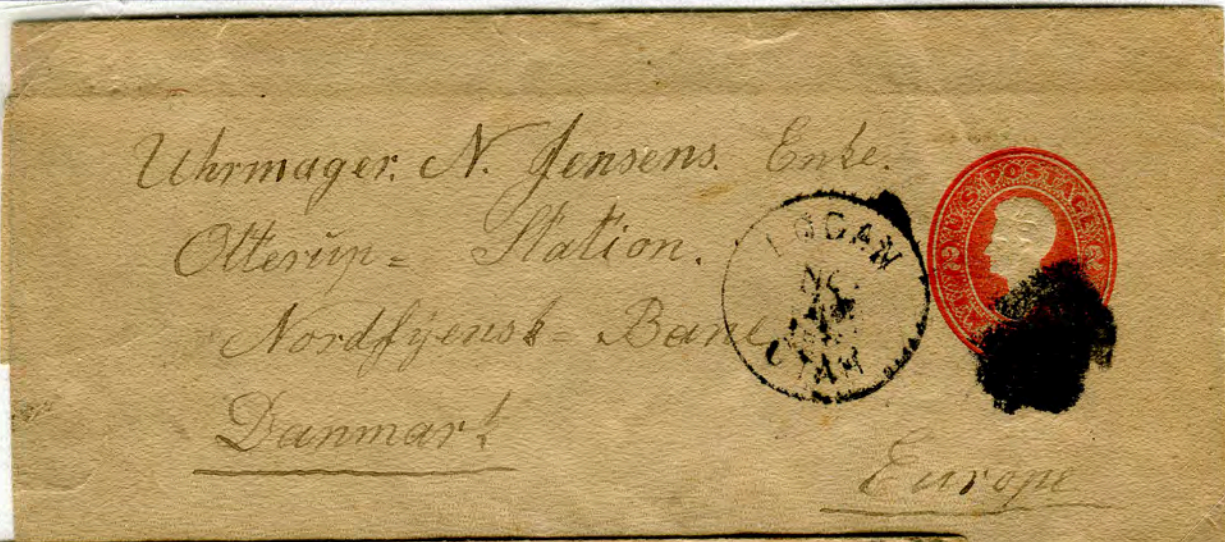 Uhrmager. N. Jensens. Enke.
Otterup= Station.
Nordfyensk- Bane
Danmark
Europe
LOGAN
UTAH
U.S. POSTAGE